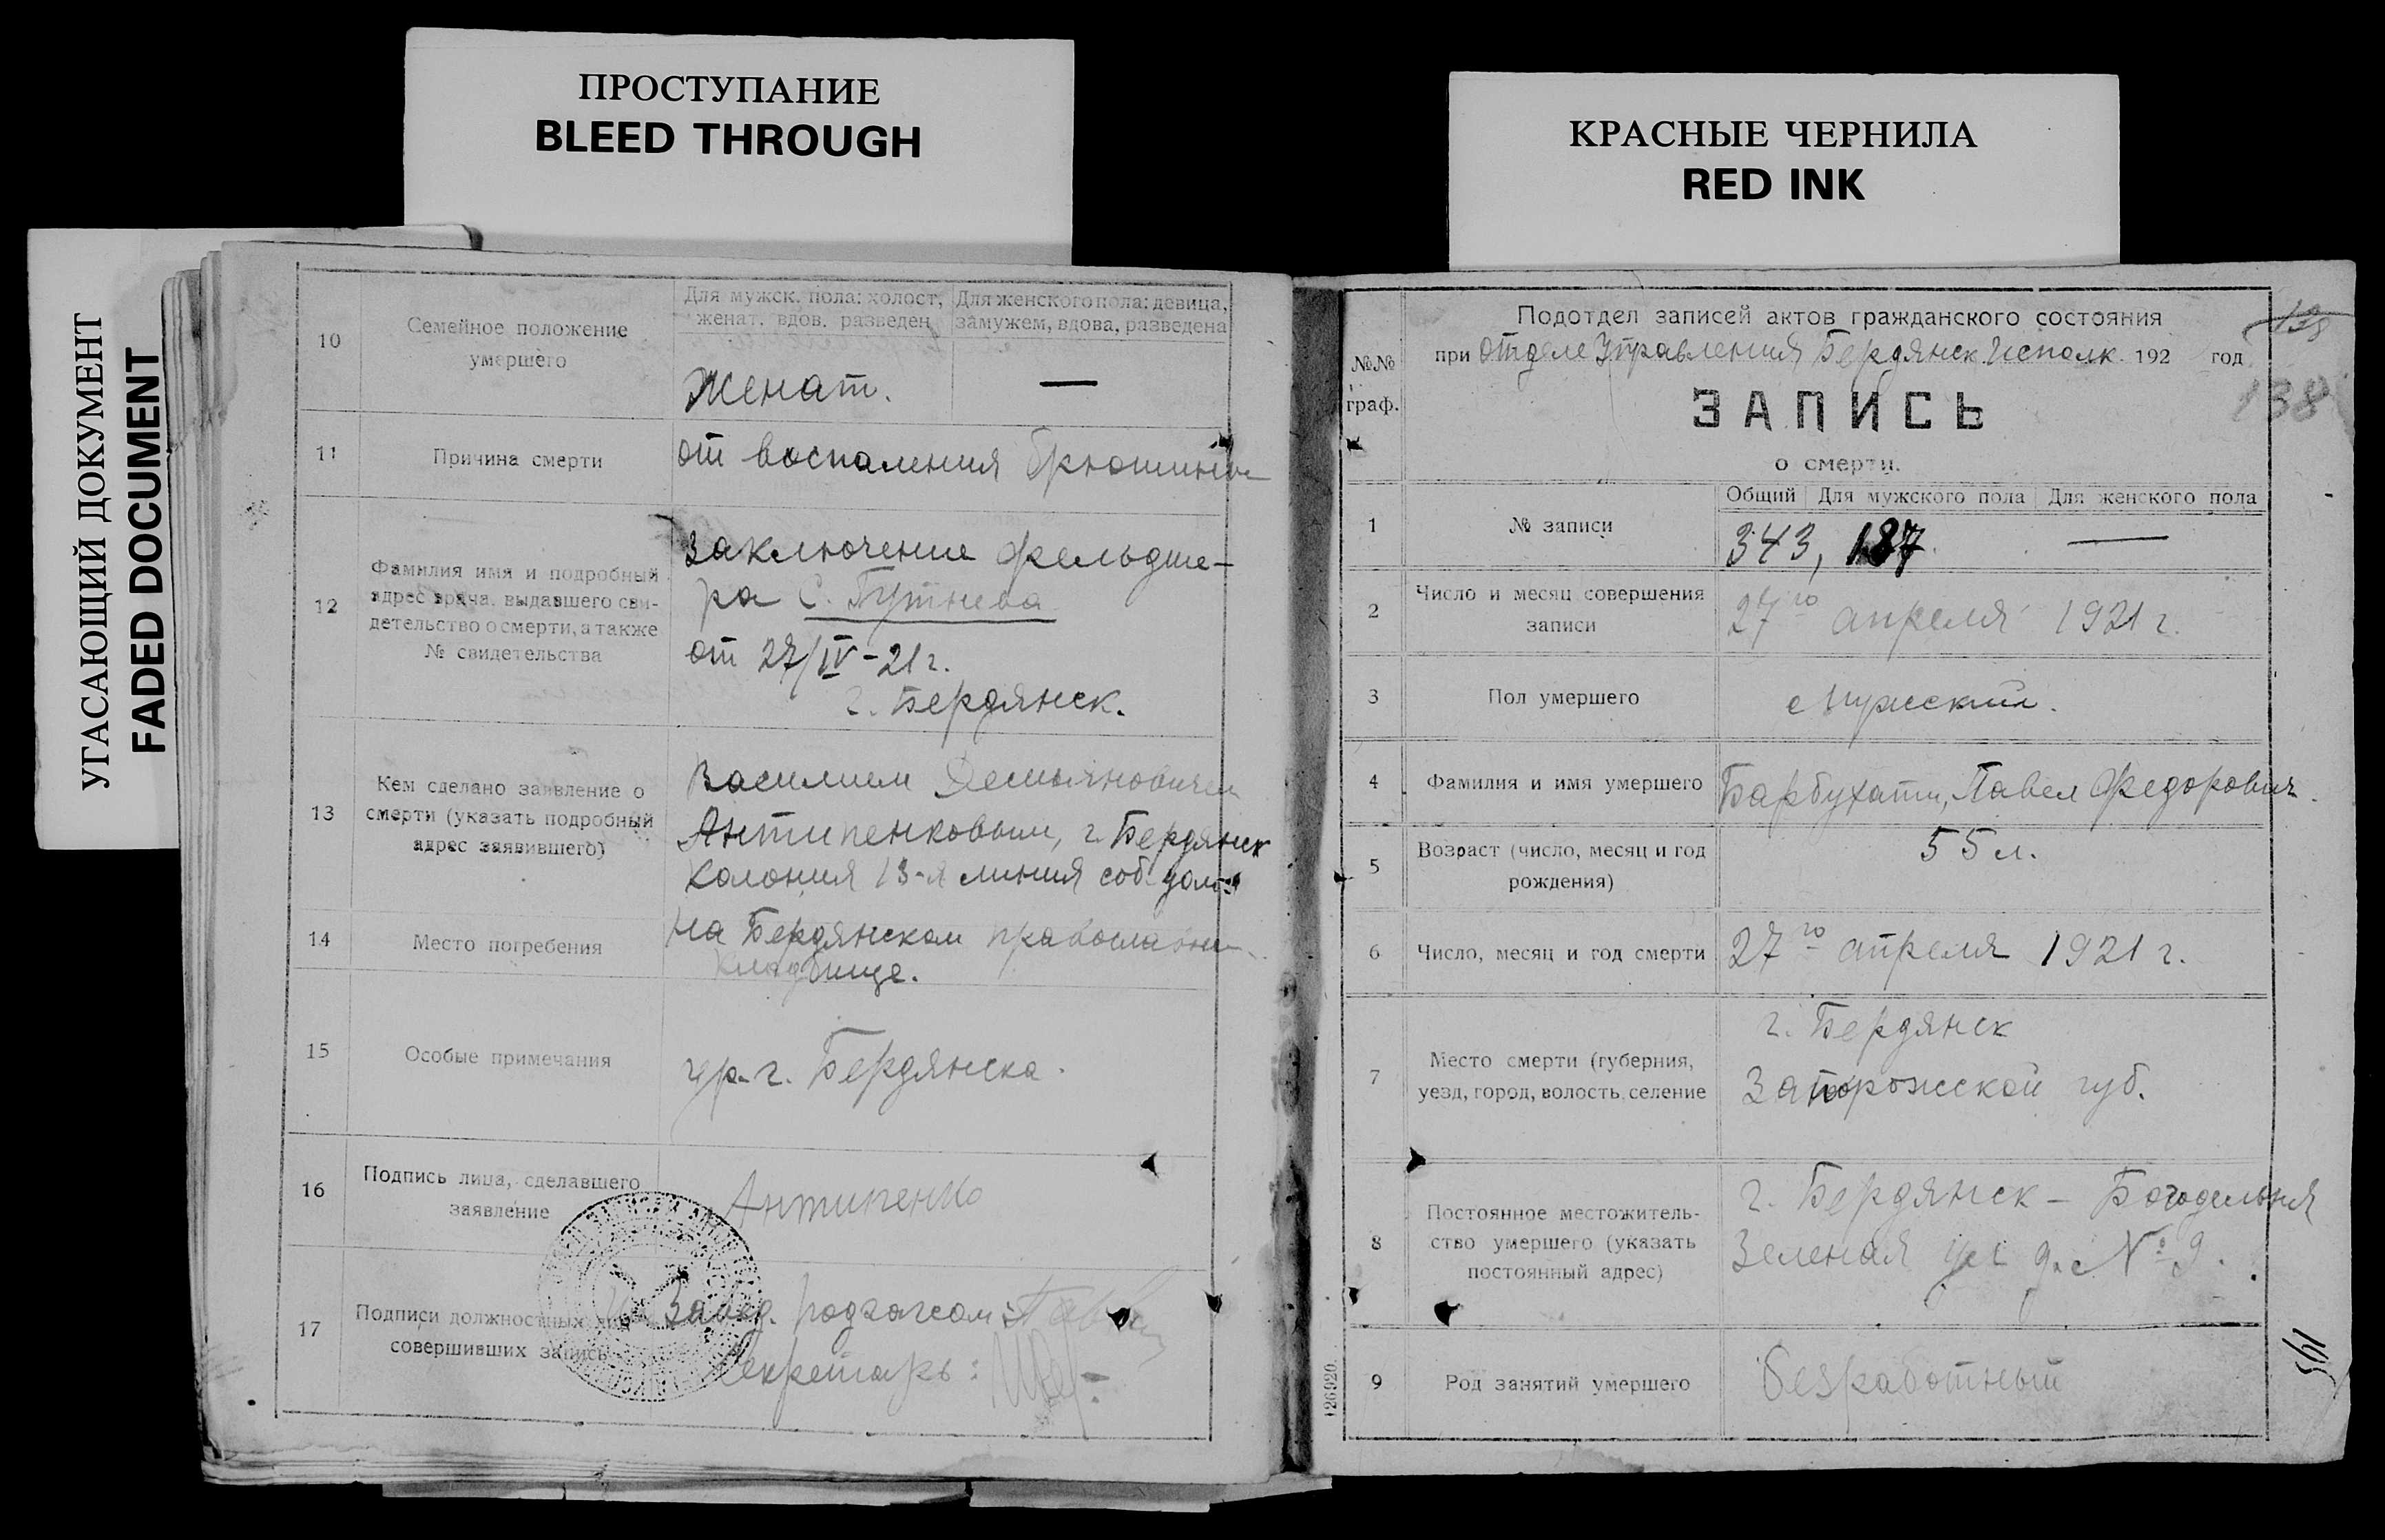 ПРОСТУПАНИЕ
BLEED THROUGH
КРАСНЫЕ ЧЕРНИЛА
RED INK
УГАСАЮЩИЙ ДОКУМЕНТ
FADED DOCUMENT
10
Семейное положение
умершего
Для мужск. пола: холост,
женат, вдов. разведен
Для женского пола: девица,
замужем, вдова, разведена
Женат.
—
11
Причина смерти
от воспаления брюшины
12
Фамилия имя и подробный
адрес врача, выдавшего сви-
детельство о смерти, а также
№ свидетельства
Заключение фельдше-
ра С. Гутнева
от 27/IV-21 г.
г. Бердянск.
13
Кем сделано заявление о
смерти (указать подробный
адрес заявившего)
Василием Демьяновичем
Антипенковым, г. Бердянск
Колония 13-я линия соб. дом
14
Место погребения
на Бердянском православн.
кладбище.
15
Особые примечания
гр. г. Бердянска.
16
Подпись лица, сделавшего
заявление
Антипенко
17
Подписи должностных лиц
совершивших запись
Завед. подзагсом:
Секретарь:
№№
граф.
Подотдел записей актов гражданского состояния
при Отделе Управления Бердянск. Исполк. 192 год
138
ЗАПИСЬ
о смерти.
1
№ записи
Общий Для мужского пола Для женского пола
343, 187. —
2
Число и месяц совершения
записи
27го апреля 1921 г.
3
Пол умершего
Мужской.
4
Фамилия и имя умершего
Барбухати, Павел Федорович.
5
Возраст (число, месяц и год
рождения)
55 л.
6
Число, месяц и год смерти
27го апреля 1921 г.
7
Место смерти (губерния,
уезд, город, волость, селение
г. Бердянск
Запорожской губ.
8
Постоянное местожитель-
ство умершего (указать
постоянный адрес)
г. Бердянск – Богодельня
Зеленая ул. д. № 9.
9
Род занятий умершего
безработный
126920.